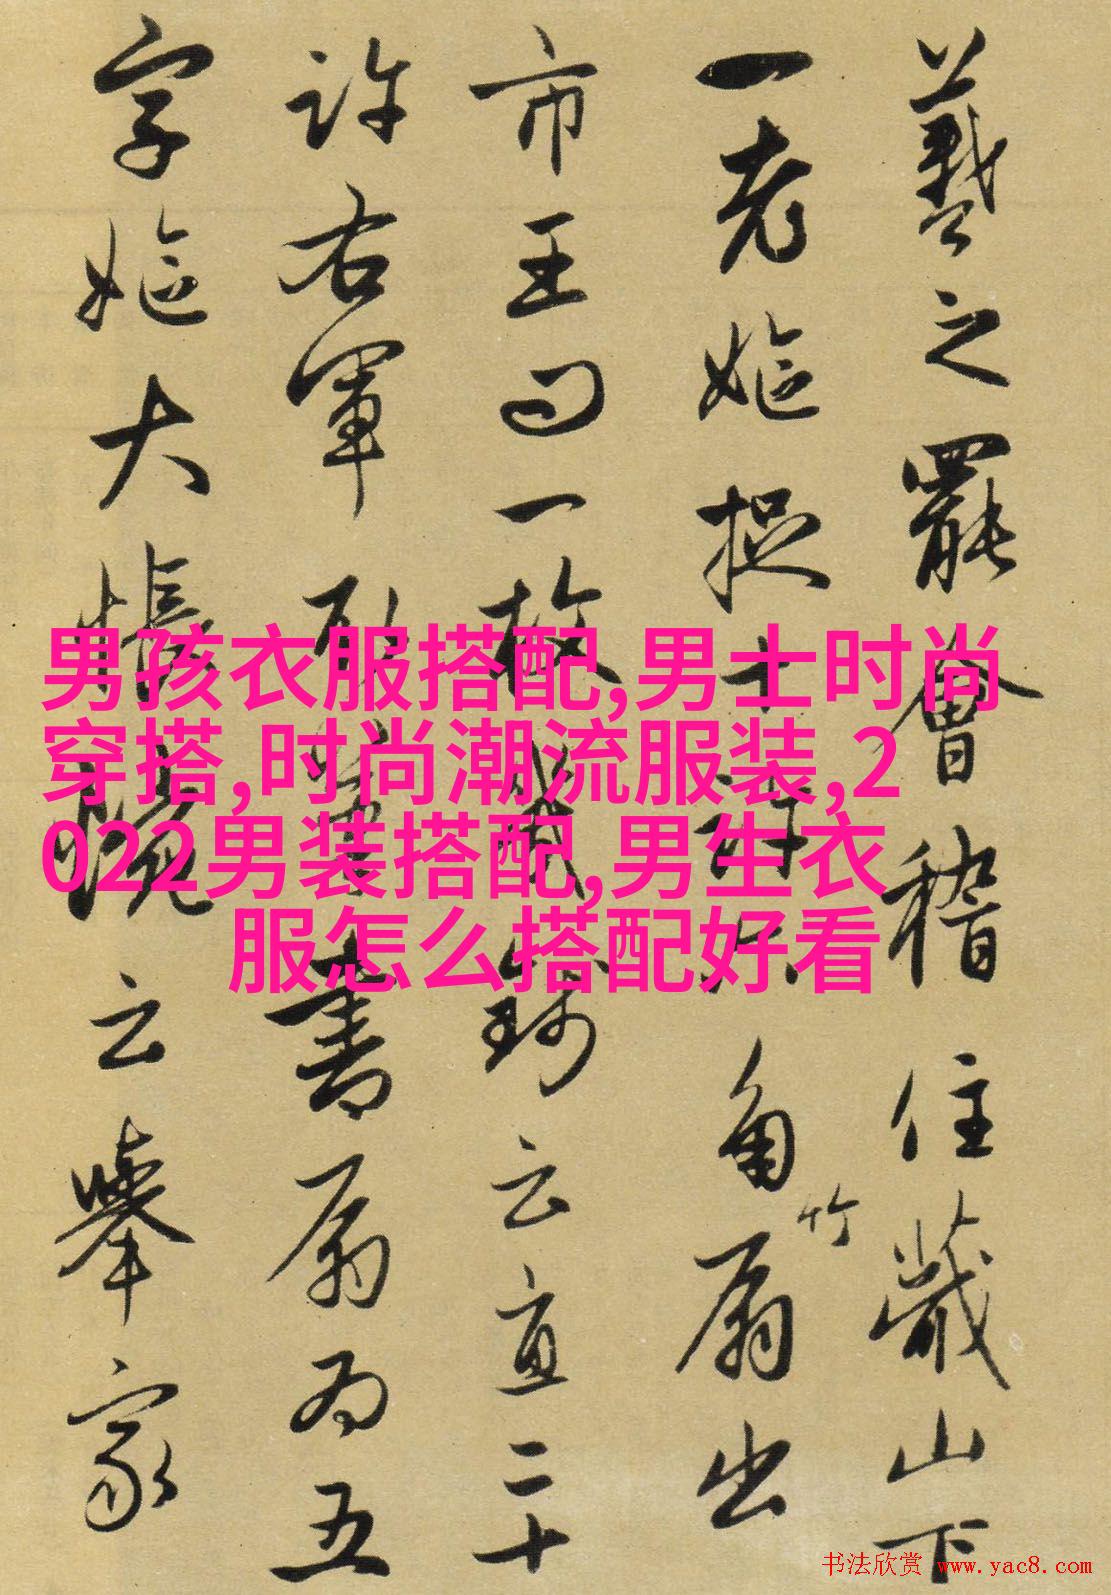 羲之罷會稽住蕺山下
一老嫗捉十許六角竹扇出
市王問一枚幾錢云直二十
許右軍取筆書扇為五
字嫗大悵惋云舉家
男孩衣服搭配,男士时尚
穿搭,时尚潮流服装,2
022男装搭配,男生衣
服怎么搭配好看
书法欣赏 www.yac8.com